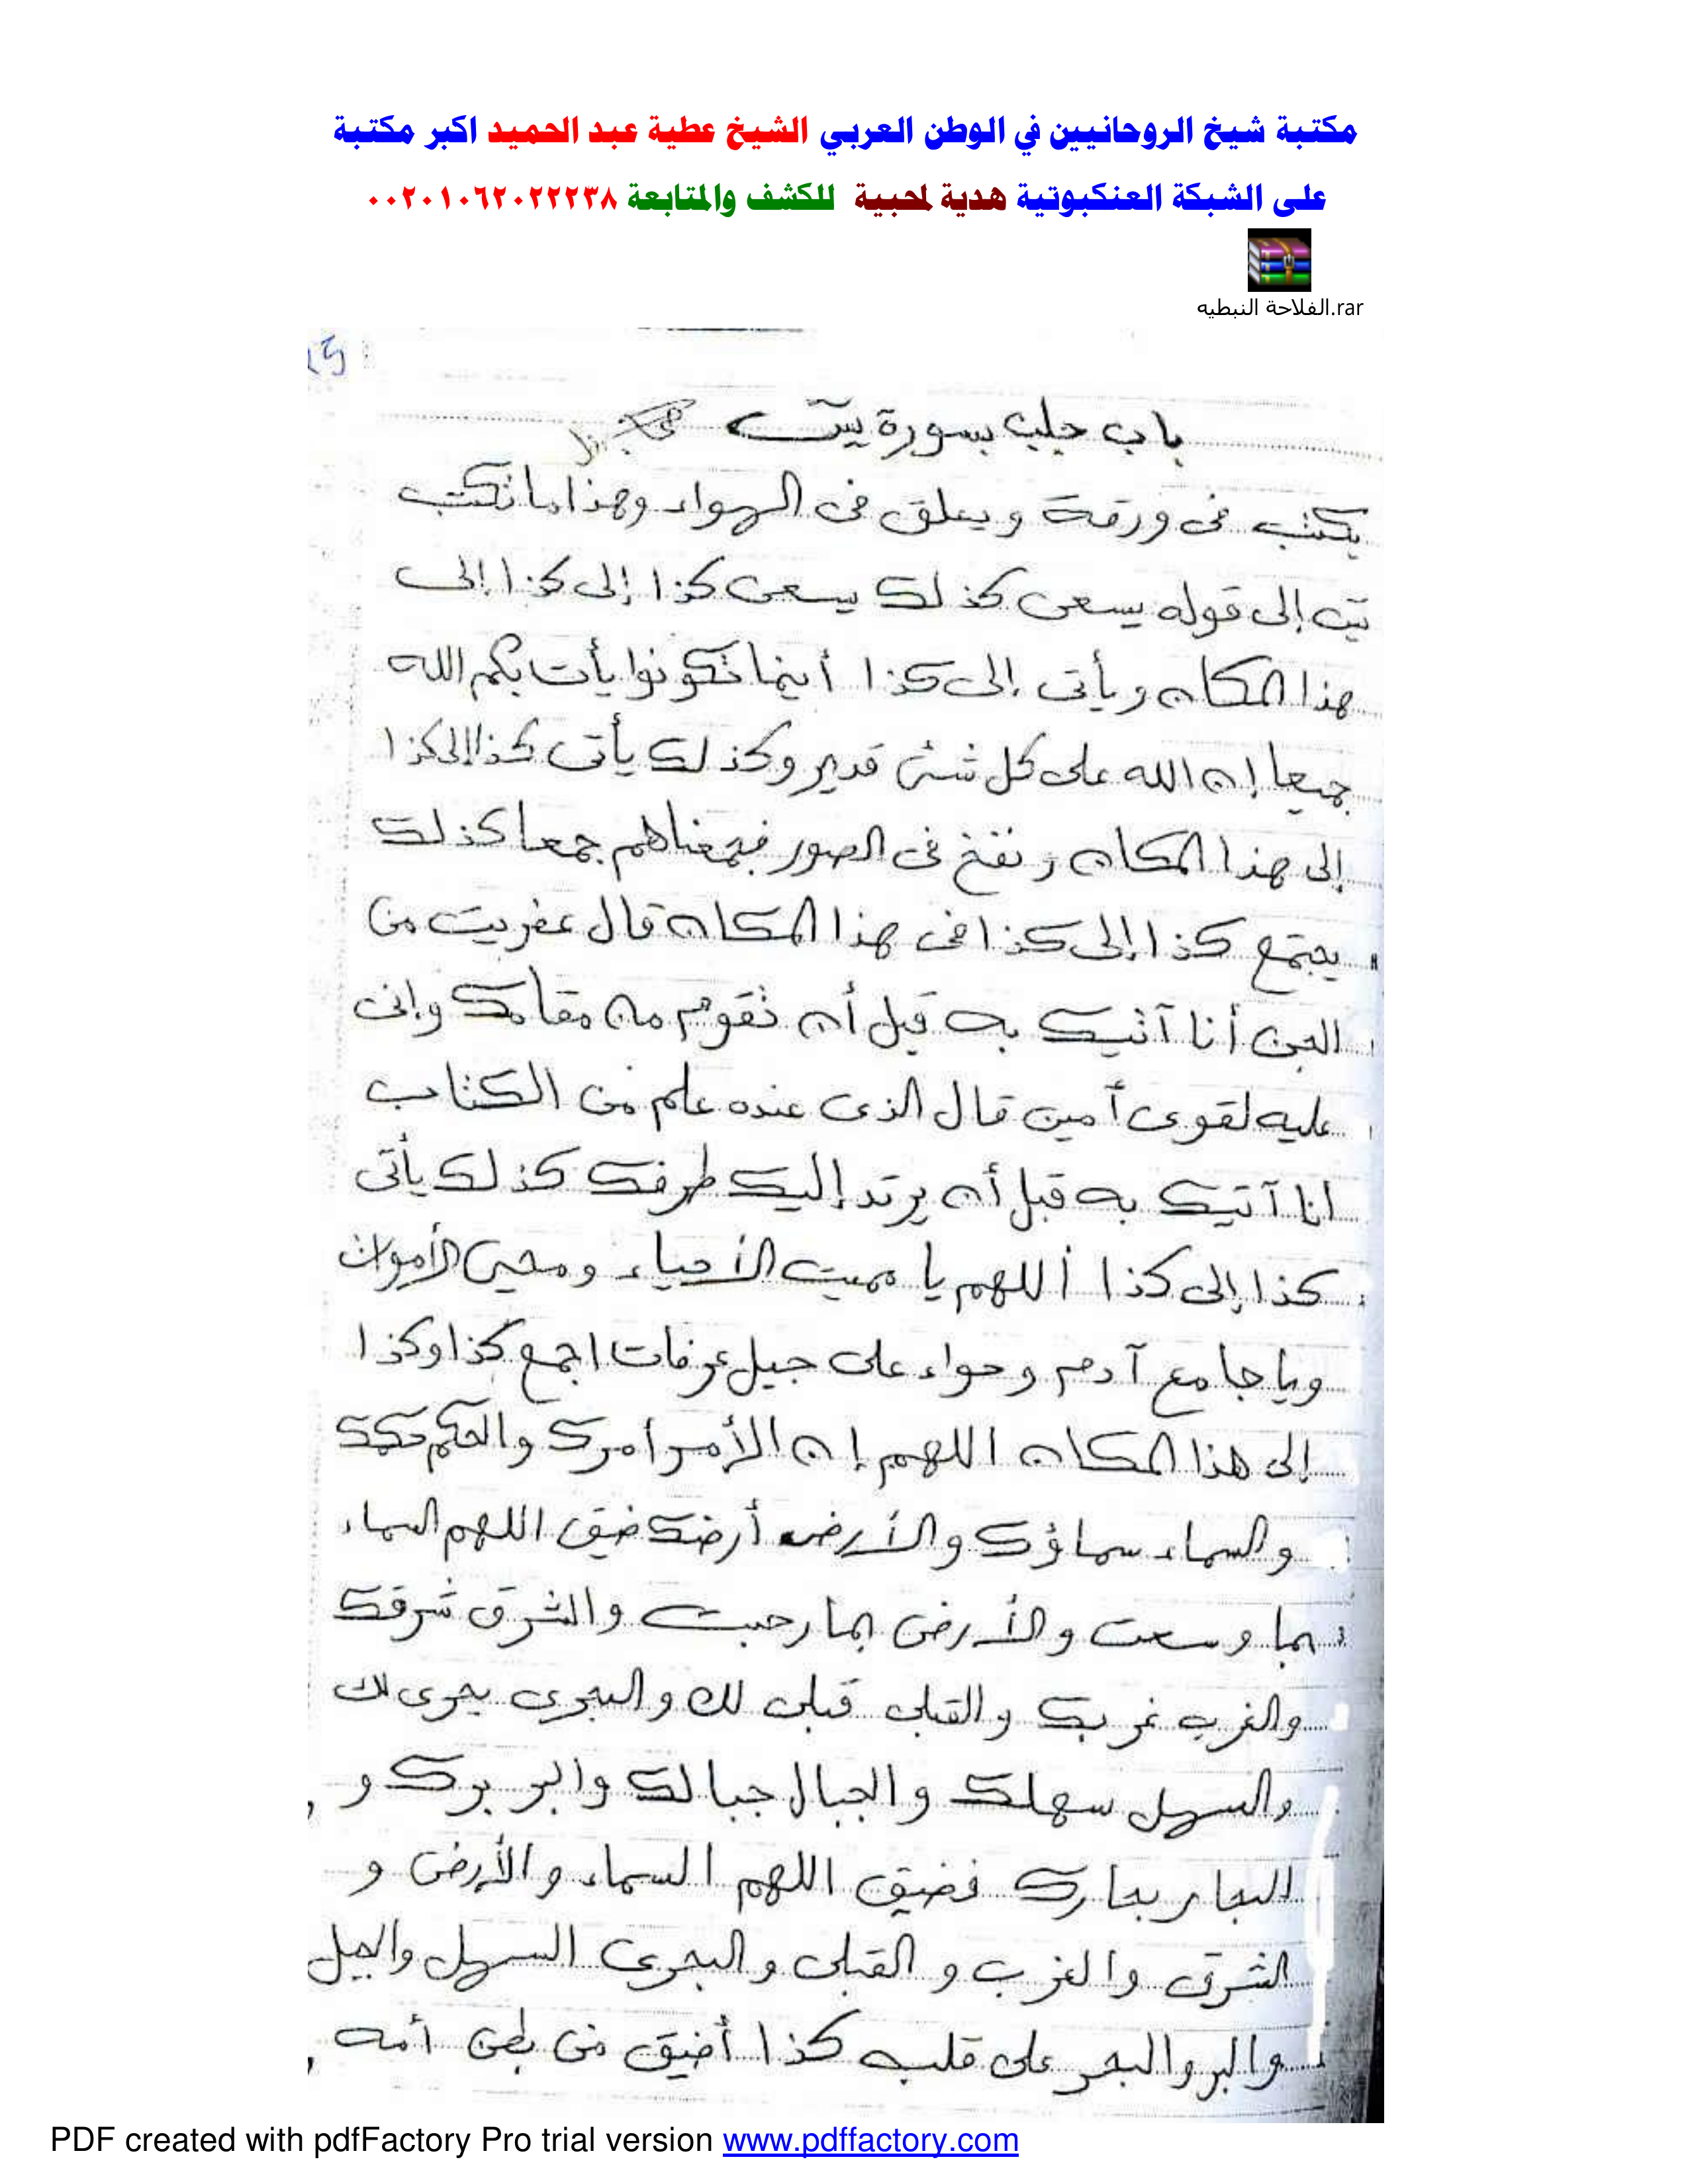 مكتبة شيخ الروحانيين في الوطن العربي الشيخ عطية عبد الحميد اكبر مكتبة
على الشبكة العنكبوتية هدية لمحبية للكشف والمتابعة ٠٠٢٠١٠٦٢٠٢٢٢٣٨
الفلاحة النبطيه.rar
باب جلب بسورة يس
يكتب فى ورقة ويعلق فى الهواء وهذا ما تكتب
يس إلى قوله يسعى كذلك يسعى كذا إلى كذا إلى
هذا المكان ويأتى إلى كذا أينما تكونوا يأت بكم الله
جميعا إن الله على كل شئ قدير وكذلك يأتى كذا إلى كذا
إلى هذا المكان ونفخ فى الصور فجمعناهم جمعا كذلك
يجتمع كذا إلى كذا فى هذا المكان قال عفريت من
الجن أنا آتيك به قبل أن تقوم من مقامك وإنى
عليه لقوى أمين قال الذى عنده علم من الكتاب
انا آتيك به قبل أن يرتد إليك طرفك كذلك يأتى
كذا إلى كذا أللهم يا مميت الأحياء ومحيى الأموات
ويا جامع آدم وحواء على جبل عرفات اجمع كذا وكذا
إلى هذا المكان اللهم إن الأمر أمرك والحكم حكمك
والسماء سماؤك والأرض أرضك ضيق اللهم السماء
بما وسعت والأرض بما رحبت والشرق شرقك
والغرب غربك والقبلى قبلى لك والبحرى بحرى لك
والسهل سهلك والجبال جبالك والبر برك و
البحار بحارك فضيق اللهم السماء والأرض و
الشرق والغرب والقبلى والبحرى السهل والجبل
والبر والبحر على قلب كذا أضيق من بطن أمه
PDF created with pdfFactory Pro trial version www.pdffactory.com